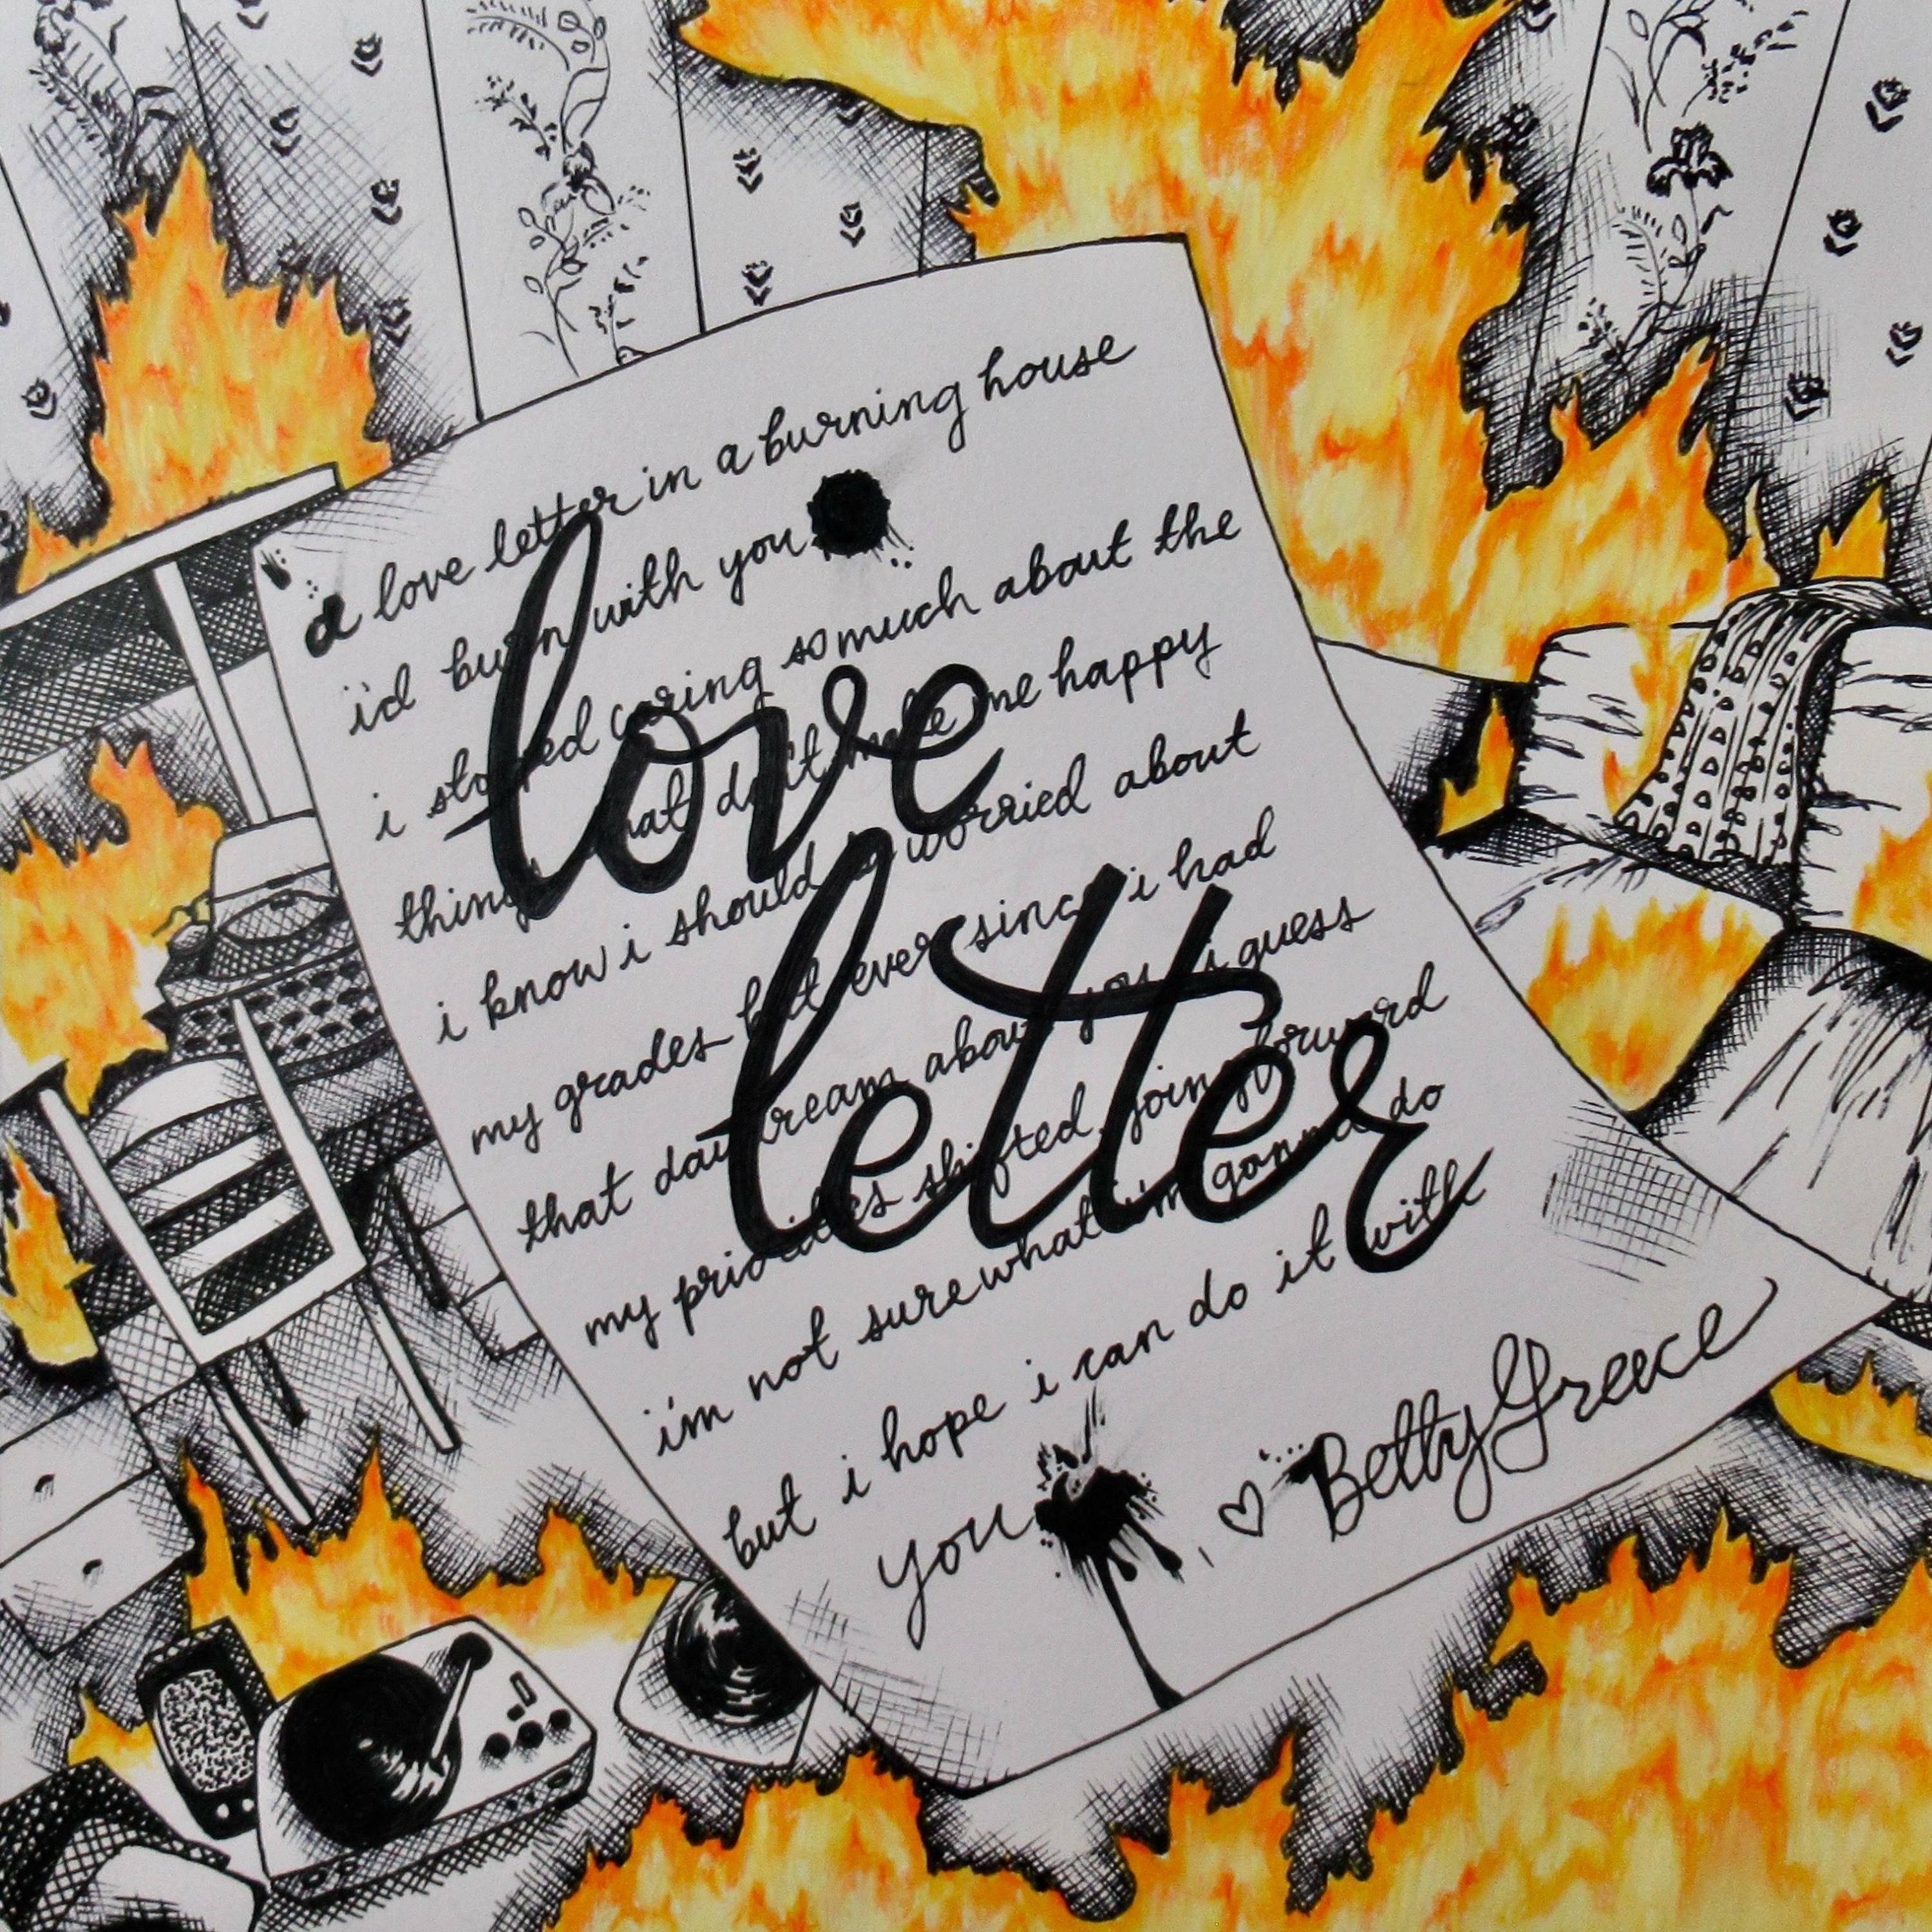 a love letter in a burning house
i'd burn with you
i stopped caring so much about the
things that don't make me happy
i know i should be worried about
my grades but ever since i had
that daydream about you i guess
my priorities shifted. going forward
i'm not sure what i'm gonna do
but i hope i can do it with
you
♡ Betty Greece
love
letter